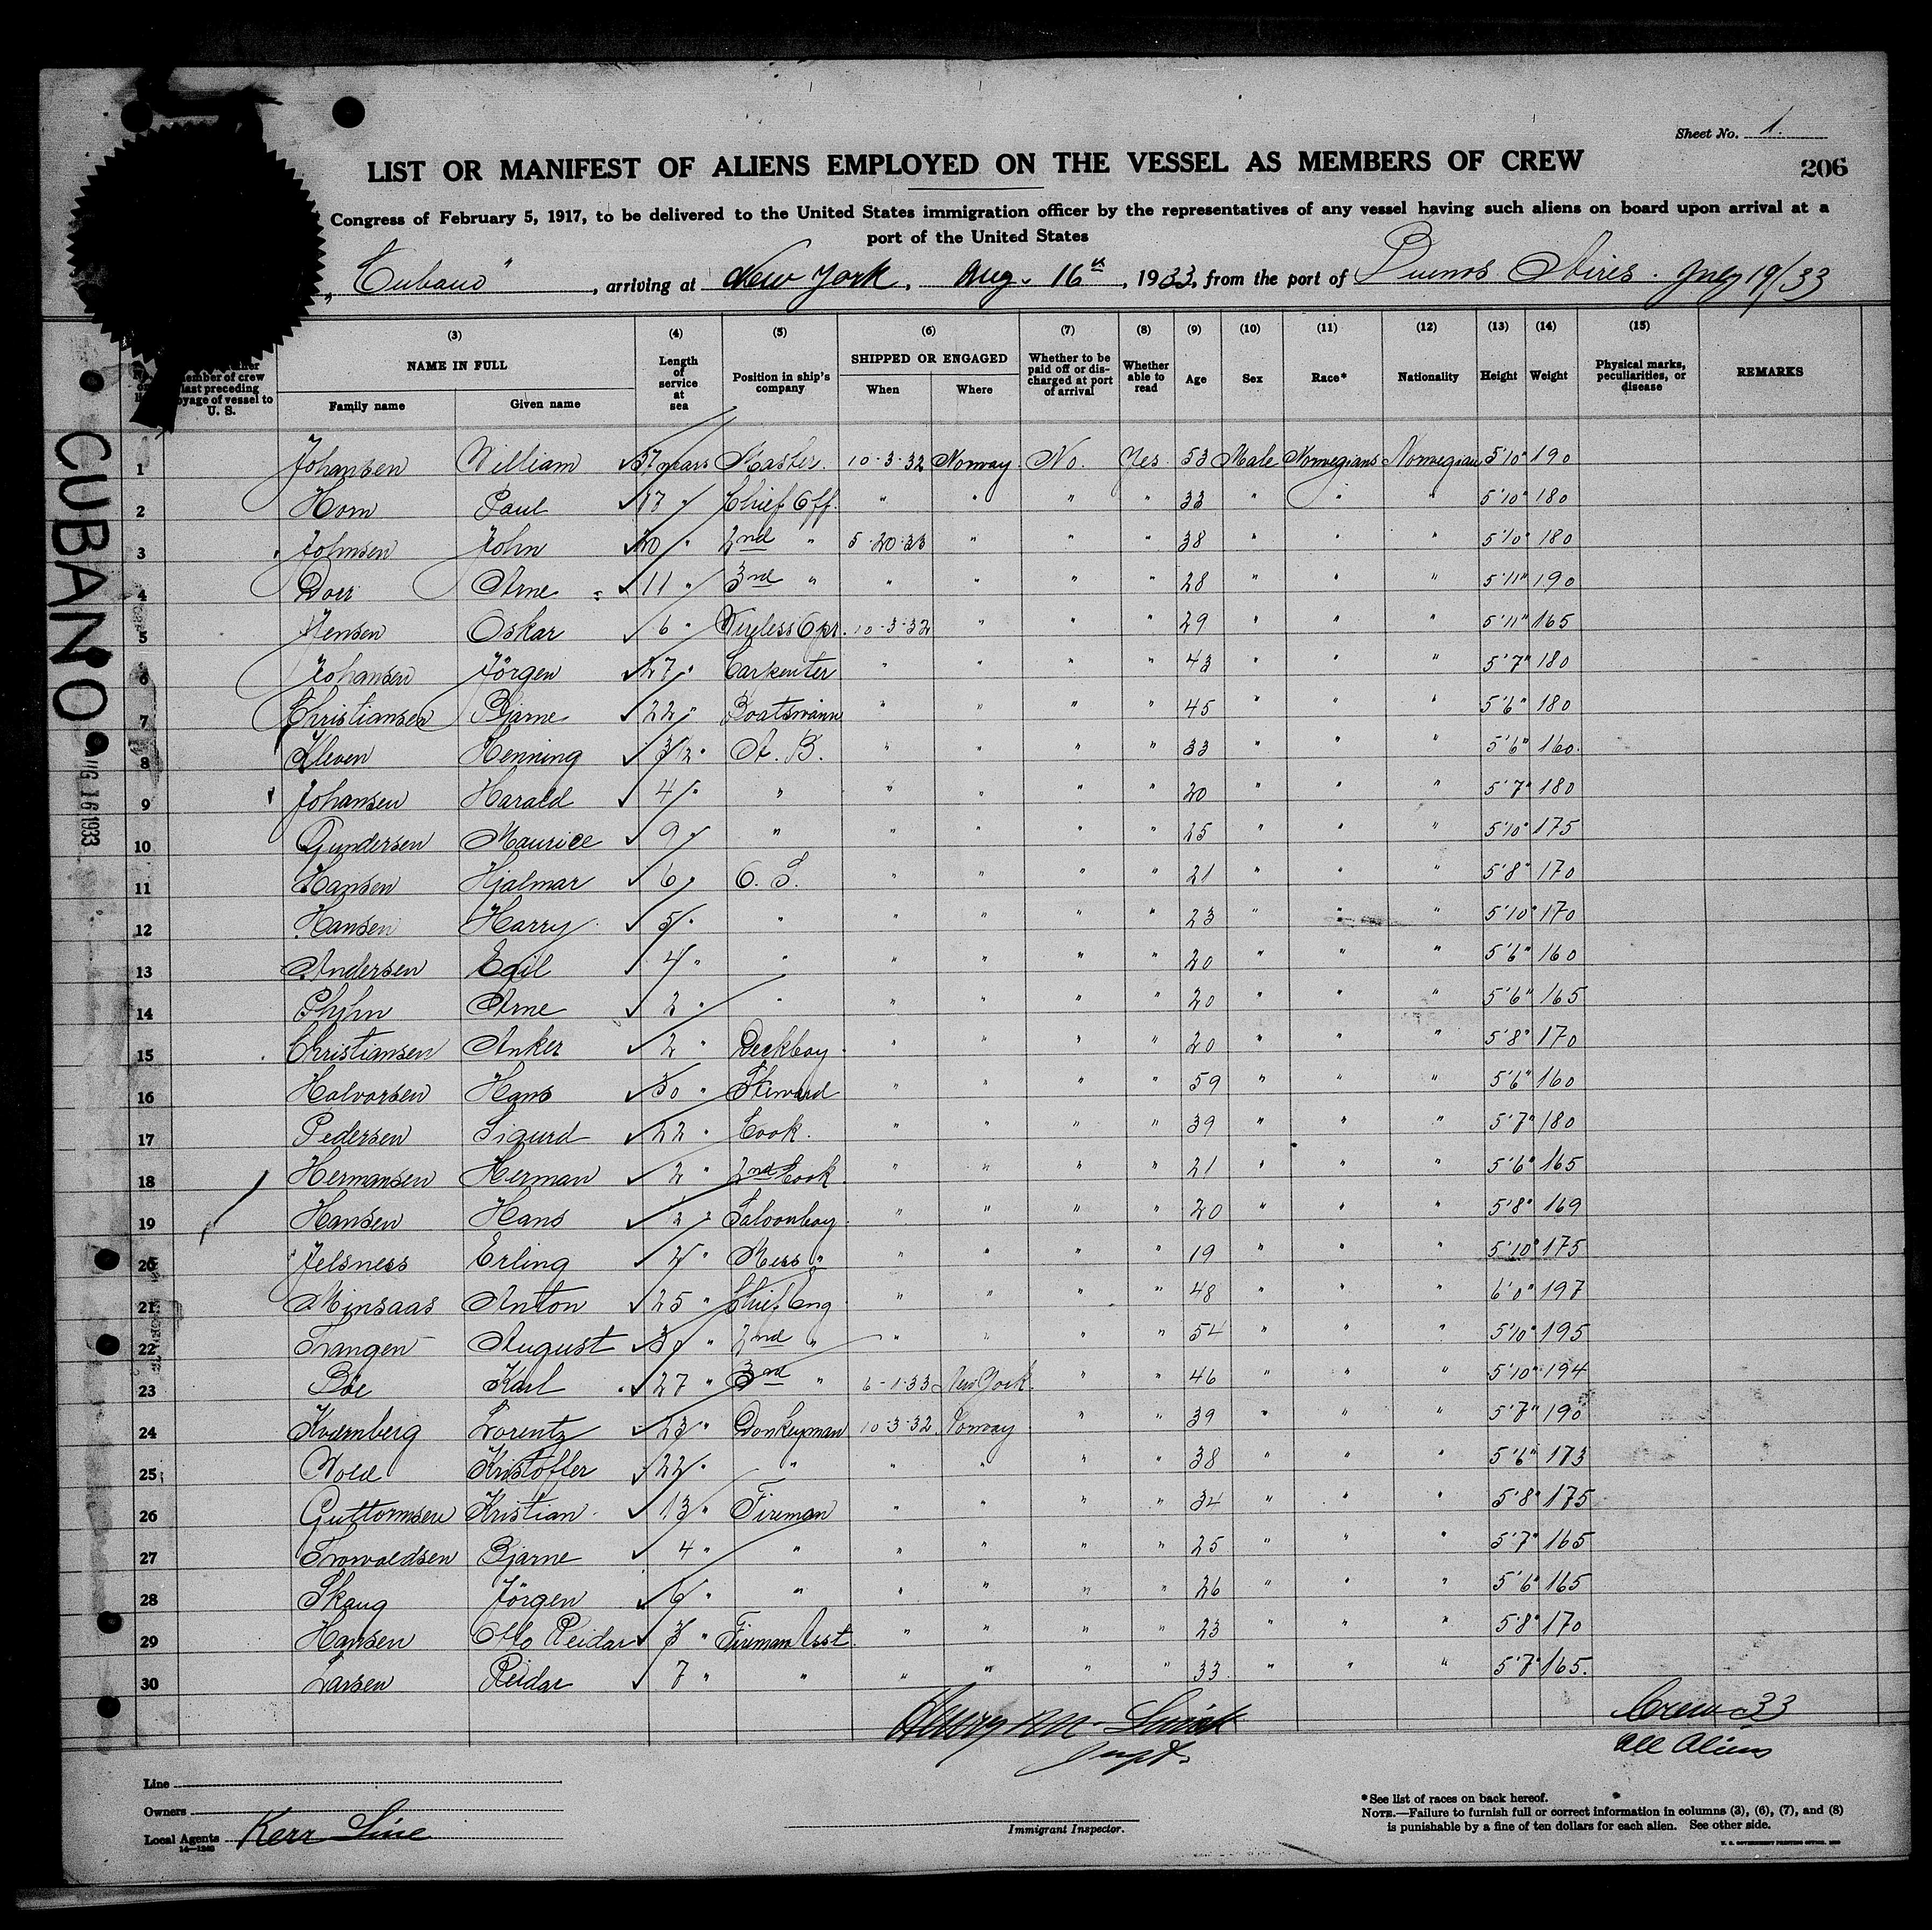 Sheet No. 1.
206
LIST OR MANIFEST OF ALIENS EMPLOYED ON THE VESSEL AS MEMBERS OF CREW
Congress of February 5, 1917, to be delivered to the United States immigration officer by the representatives of any vessel having such aliens on board upon arrival at a
port of the United States
"Cubano", arriving at New York, Aug. 16th, 1933, from the port of Buenos Aires. July 19/33
(3) (4) (5) (6) (7) (8) (9) (10) (11) (12) (13) (14) (15)
member of crew last preceding voyage of vessel to U. S.
NAME IN FULL
Family name Given name
Length of service at sea
Position in ship's company
SHIPPED OR ENGAGED
When Where
Whether to be paid off or discharged at port of arrival
Whether able to read
Age Sex Race* Nationality Height Weight
Physical marks, peculiarities, or disease
REMARKS
1 Johansen William 37 years Master. 10-3-32 Norway. No. Yes 53 Male Norwegians Norwegian 5'10" 190
2 Horn Paul 17 " Chief Off. " " " " 33 " " " 5'10" 180
3 Johnsen John 20 " 2nd " 5-20-33 " " " 38 " " " 5'10" 180
4 Arne 11 " 3rd " " " " " 28 " " " 5'11" 190
5 Jensen Oskar 6 " Wireless Opr. 10-3-32 " " " 29 " " " 5'11" 165
6 Johansen Jörgen 27 " Carpenter " " " " 43 " " " 5'7" 180
7 Christiansen Bjarne 22 " Boatsmann " " " " 45 " " " 5'6" 180
8 Kleven Henning " A. B. " " " " 33 " " " 5'6" 160.
9 Johansen Harald 4 " " " " " " 20 " " " 5'7" 180
10 Gundersen Maurice 9 " " " " " " 25 " " " 5'10" 175
11 Hansen Hjalmar 6 " O. S. " " " " 21 " " " 5'8" 170
12 Hansen Harry 5 " " " " " " 23 " " " 5'10" 170
13 Andersen Egil 4 " " " " " " 20 " " " 5'6" 160
14 Arne 2 " " " " " " 20 " " " 5'6" 165
15 Christiansen Anker 2 " Deckboy " " " " 20 " " " 5'8" 170
16 Halvorsen Hans 30 " Steward " " " " 59 " " " 5'6" 160
17 Pedersen Sigurd 22 " Cook. " " " " 39 " " " 5'7" 180
18 Hermansen Herman 2 " 2nd Cook " " " " 21 " " " 5'6" 165
19 Hansen Hans 2 " Saloonboy " " " " 20 " " " 5'8" 169
20 Jelsness Erling 2 " Mess " " " " " 19 " " " 5'10" 175
21 Minsaas Anton 25 " Chief Eng " " " " 48 " " " 6'0" 197
22 Trangen August 30 " 2nd " " " " " 54 " " " 5'10" 195
23 Böe Karl 27 " 3rd " 6-1-33 New York " " 46 " " " 5'10" 194
24 Kvernberg Lorentz 23 " Donkeyman 10-3-32 Norway " " 39 " " " 5'7" 190
25 Wold Kristofler 22 " " " " " " 38 " " " 5'6" 173
26 Guttormsen Kristian 13 " Fireman " " " " 34 " " " 5'8" 175
27 Bjarne 4 " " " " " " 25 " " " 5'7" 165
28 Skaug Jörgen 6 " " " " " " 26 " " " 5'6" 165
29 Hansen Otto Reidar 3 " Fireman Asst. " " " " 23 " " " 5'8" 170
30 Larsen Reidar 7 " " " " " " 33 " " " 5'7" 165.
Crew 33
All Aliens
CUBANO
AUG 16 1933
Line
Owners
Local Agents Kerr Line
14—1240
Immigrant Inspector.
*See list of races on back hereof.
NOTE.—Failure to furnish full or correct information in columns (3), (6), (7), and (8)
is punishable by a fine of ten dollars for each alien. See other side.